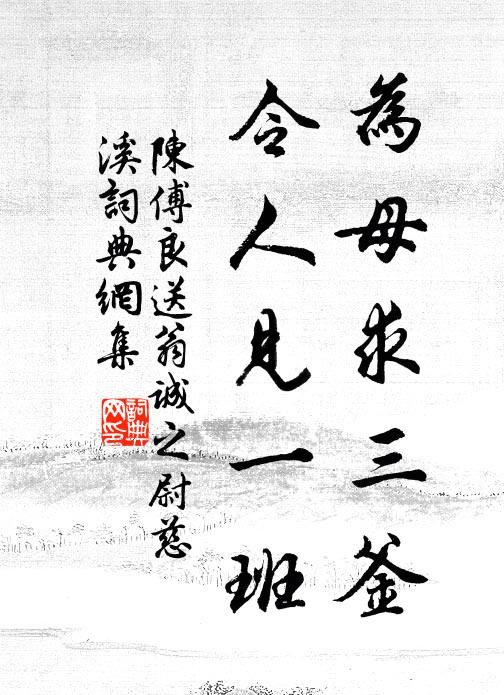 為毋求三釜
令人見一班
陳傅良送翁誠之尉慈
溪詞典網集
詞典网印